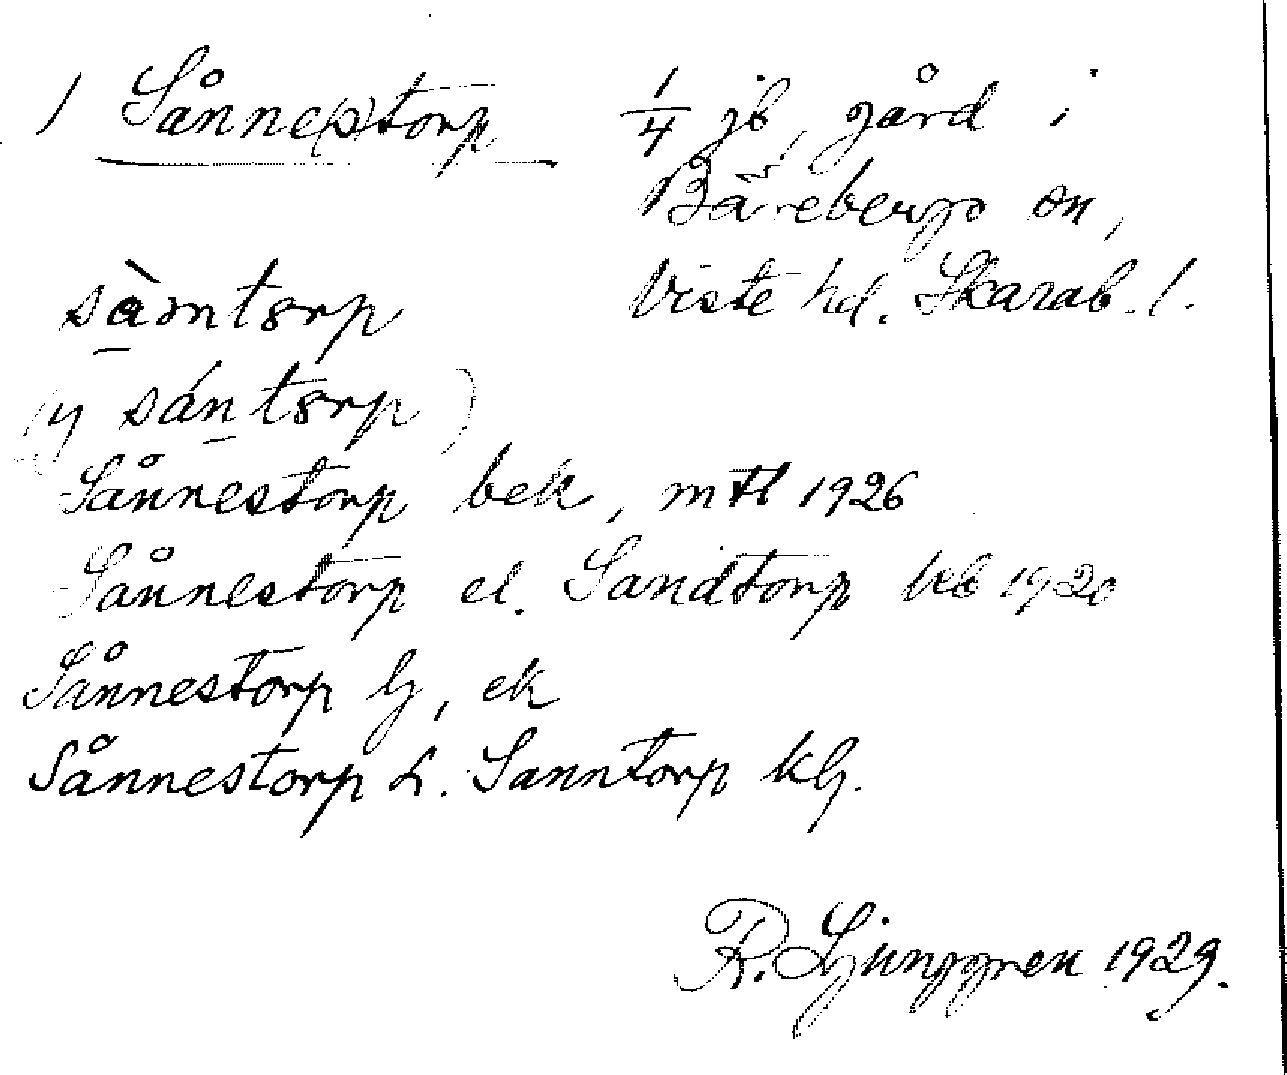 1 Sånne(s)torp 1/4 jb, gård i
Bärebergs sn,
Viste hd. Skarab. l.
sàmtorp
(y sántorp)
Sånnestorp bek, mtl 1926
Sånnestorp el. Sandtorp kb 1920
Sånnestorp lj, ek
Sånnestorp L. Sanntorp klj.
R. Ljunggren 1929.